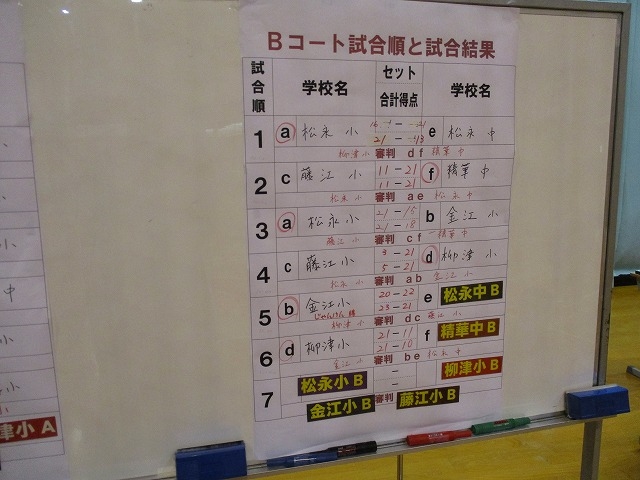 Bコート試合順と試合結果
試合順 学校名 セット 合計得点 学校名
1 a 松永小 21 - 13 e 松永中
柳津小 審判 d f 精華中
2 c 藤江小 11 - 21 f 精華中
11 - 21
松永小 審判 a e 松永中
3 a 松永小 21 - 15 b 金江小
21 - 18
藤江小 審判 c f 精華中
4 c 藤江小 3 - 21 d 柳津小
5 - 21
松永小 審判 a b 金江小
5 b 金江小 20 - 22 e 松永中B
じゃんけん勝 23 - 21
柳津小 審判 d c 藤江小
6 d 柳津小 21 - 11 f 精華中B
21 - 10
金江小 審判 b e 松永中
7 松永小B - 柳津小B
-
金江小B 審判 藤江小B
津小A